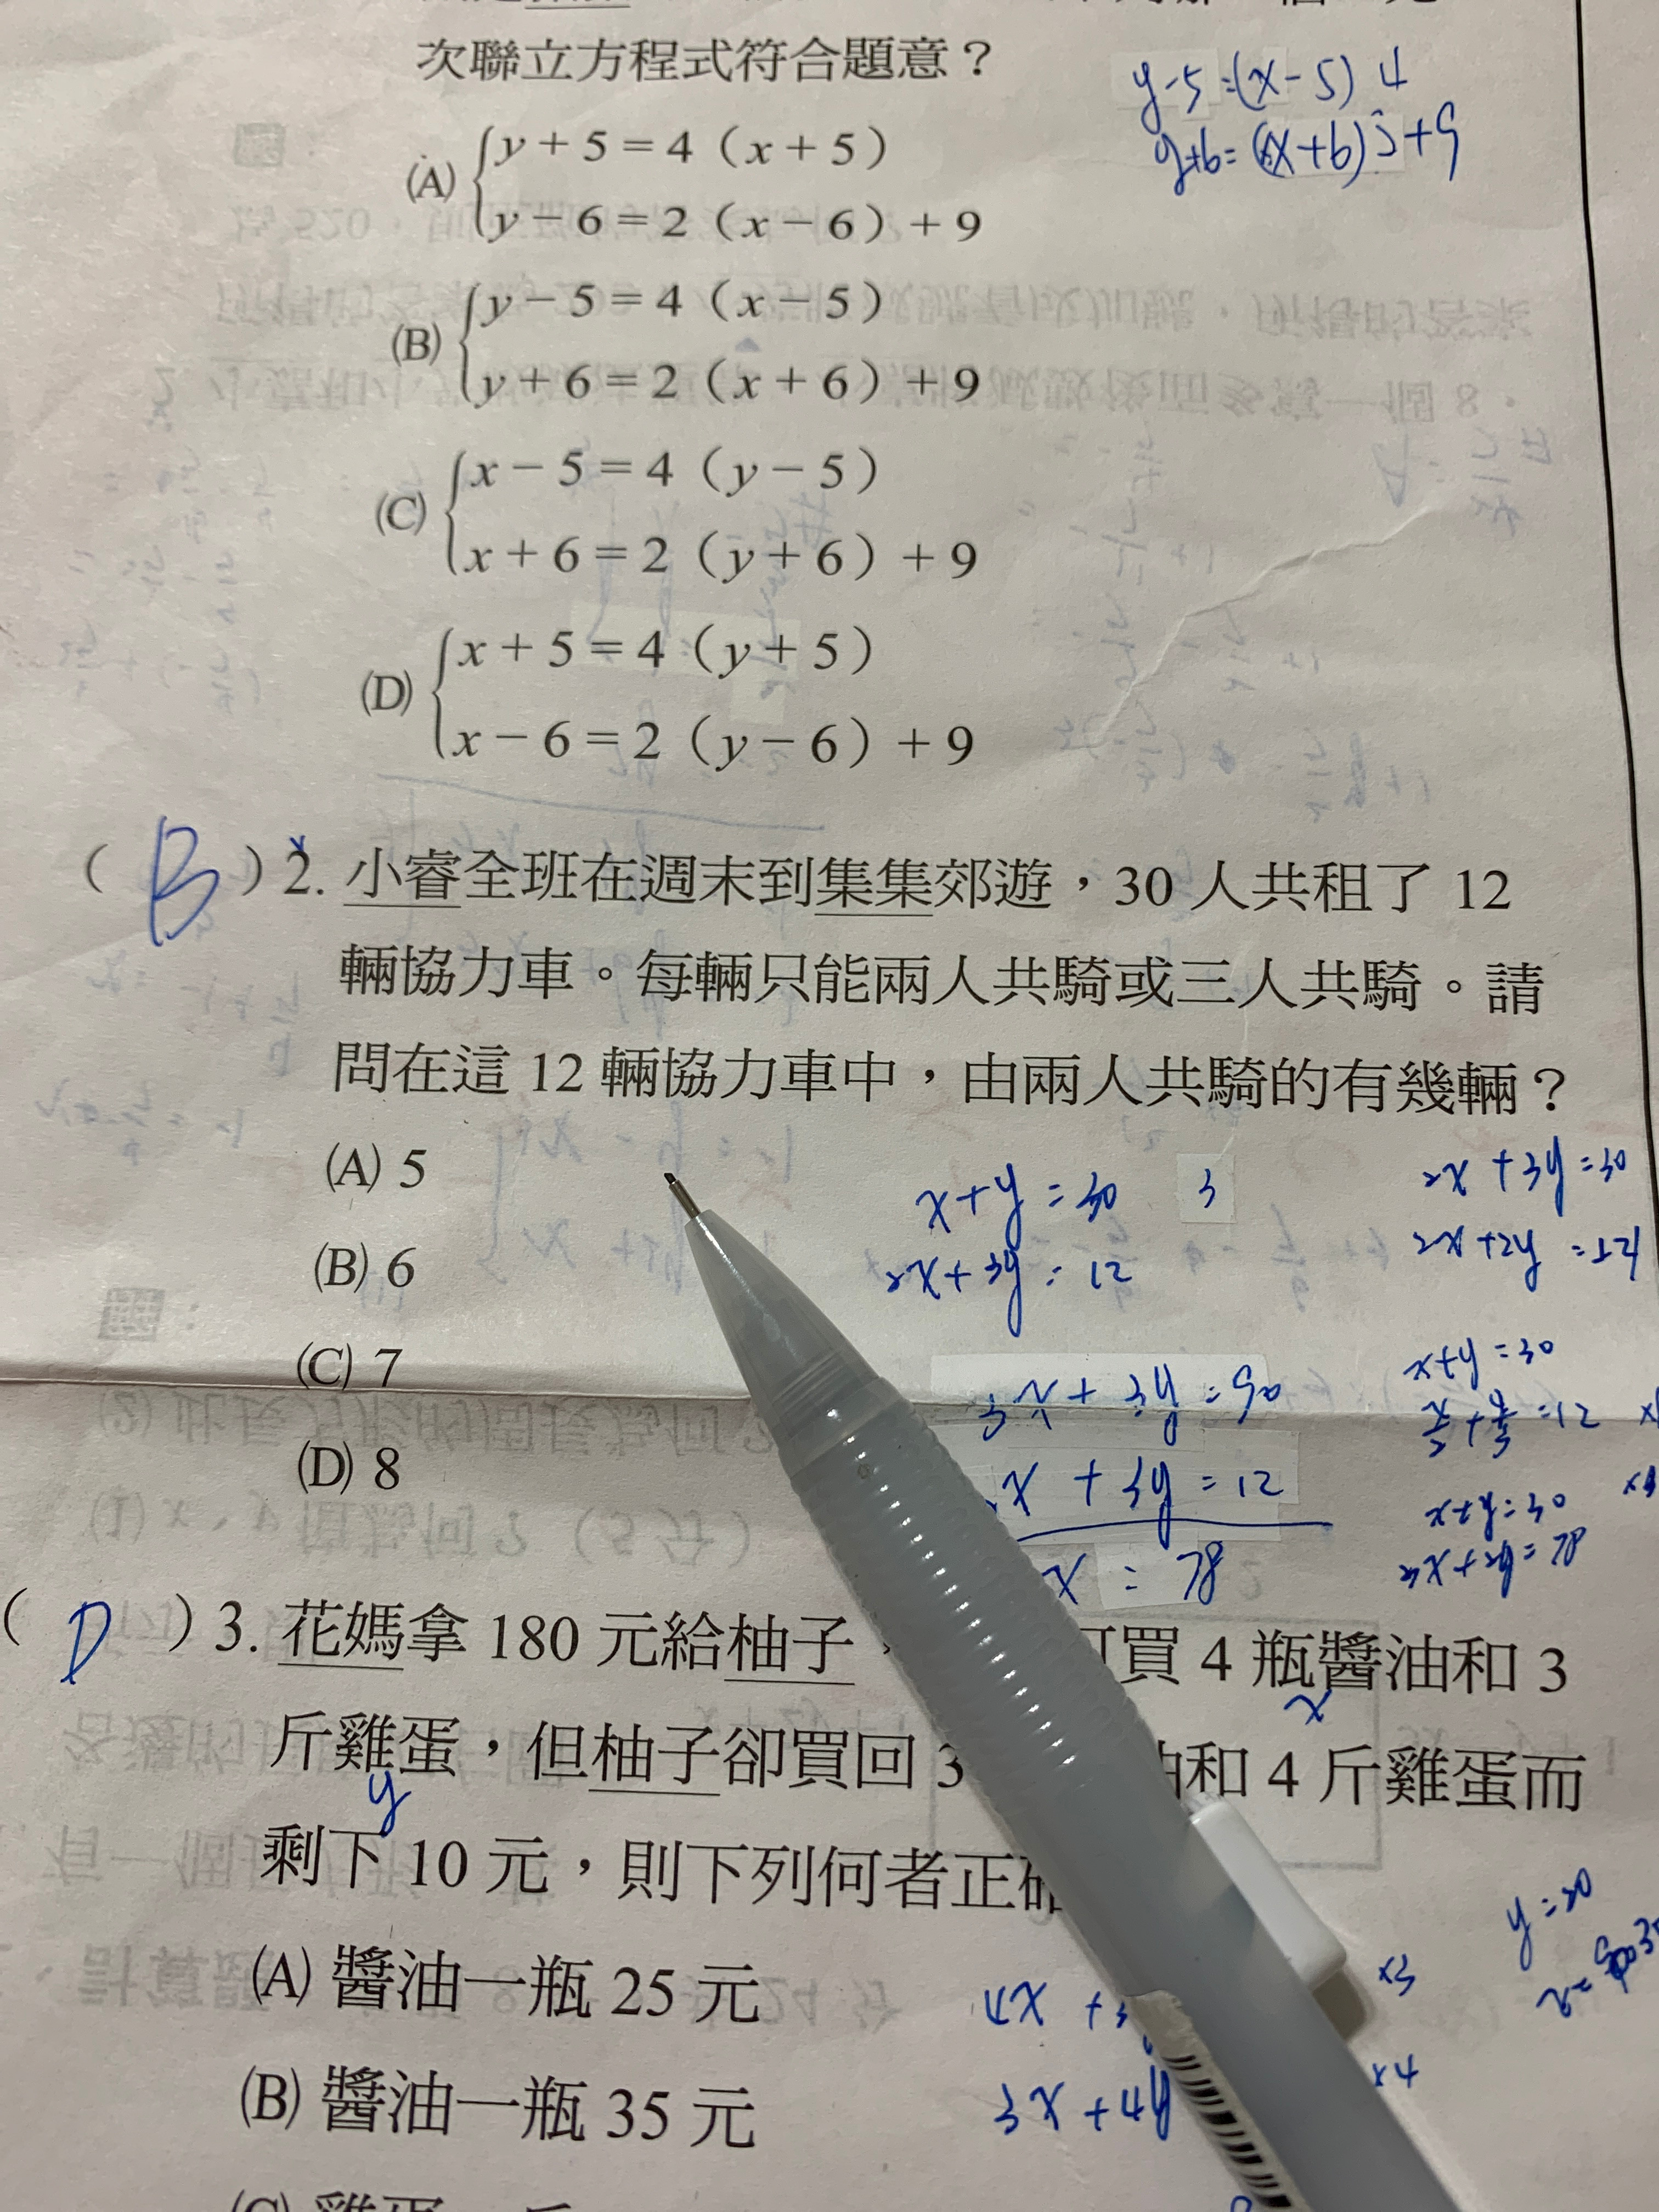 次聯立方程式符合題意？
y-5=(x-5) 4
(A) { y + 5 = 4 ( x + 5 )
y − 6 = 2 ( x − 6 ) + 9
(B) { y − 5 = 4 ( x − 5 )
y + 6 = 2 ( x + 6 ) + 9
(C) { x − 5 = 4 ( y − 5 )
x + 6 = 2 ( y + 6 ) + 9
(D) { x + 5 = 4 ( y + 5 )
x − 6 = 2 ( y − 6 ) + 9
( B ) 2. 小睿全班在週末到集集郊遊，30 人共租了 12
輛協力車。每輛只能兩人共騎或三人共騎。請
問在這 12 輛協力車中，由兩人共騎的有幾輛？
(A) 5
(B) 6
(C) 7
(D) 8
x+y=30 3
2x+3y=12
3x+3y=90
x+3y=12
x=78
2x+3y=30
2x+2y=24
x+y=30
x+y=30
( D ) 3. 花媽拿 180 元給柚子，買 4 瓶醬油和 3
x
斤雞蛋，但柚子卻買回 3 和 4 斤雞蛋而
y
剩下 10 元，則下列何者正
(A) 醬油一瓶 25 元
(B) 醬油一瓶 35 元
4x +3
×3
3x+4y
×4
y=30